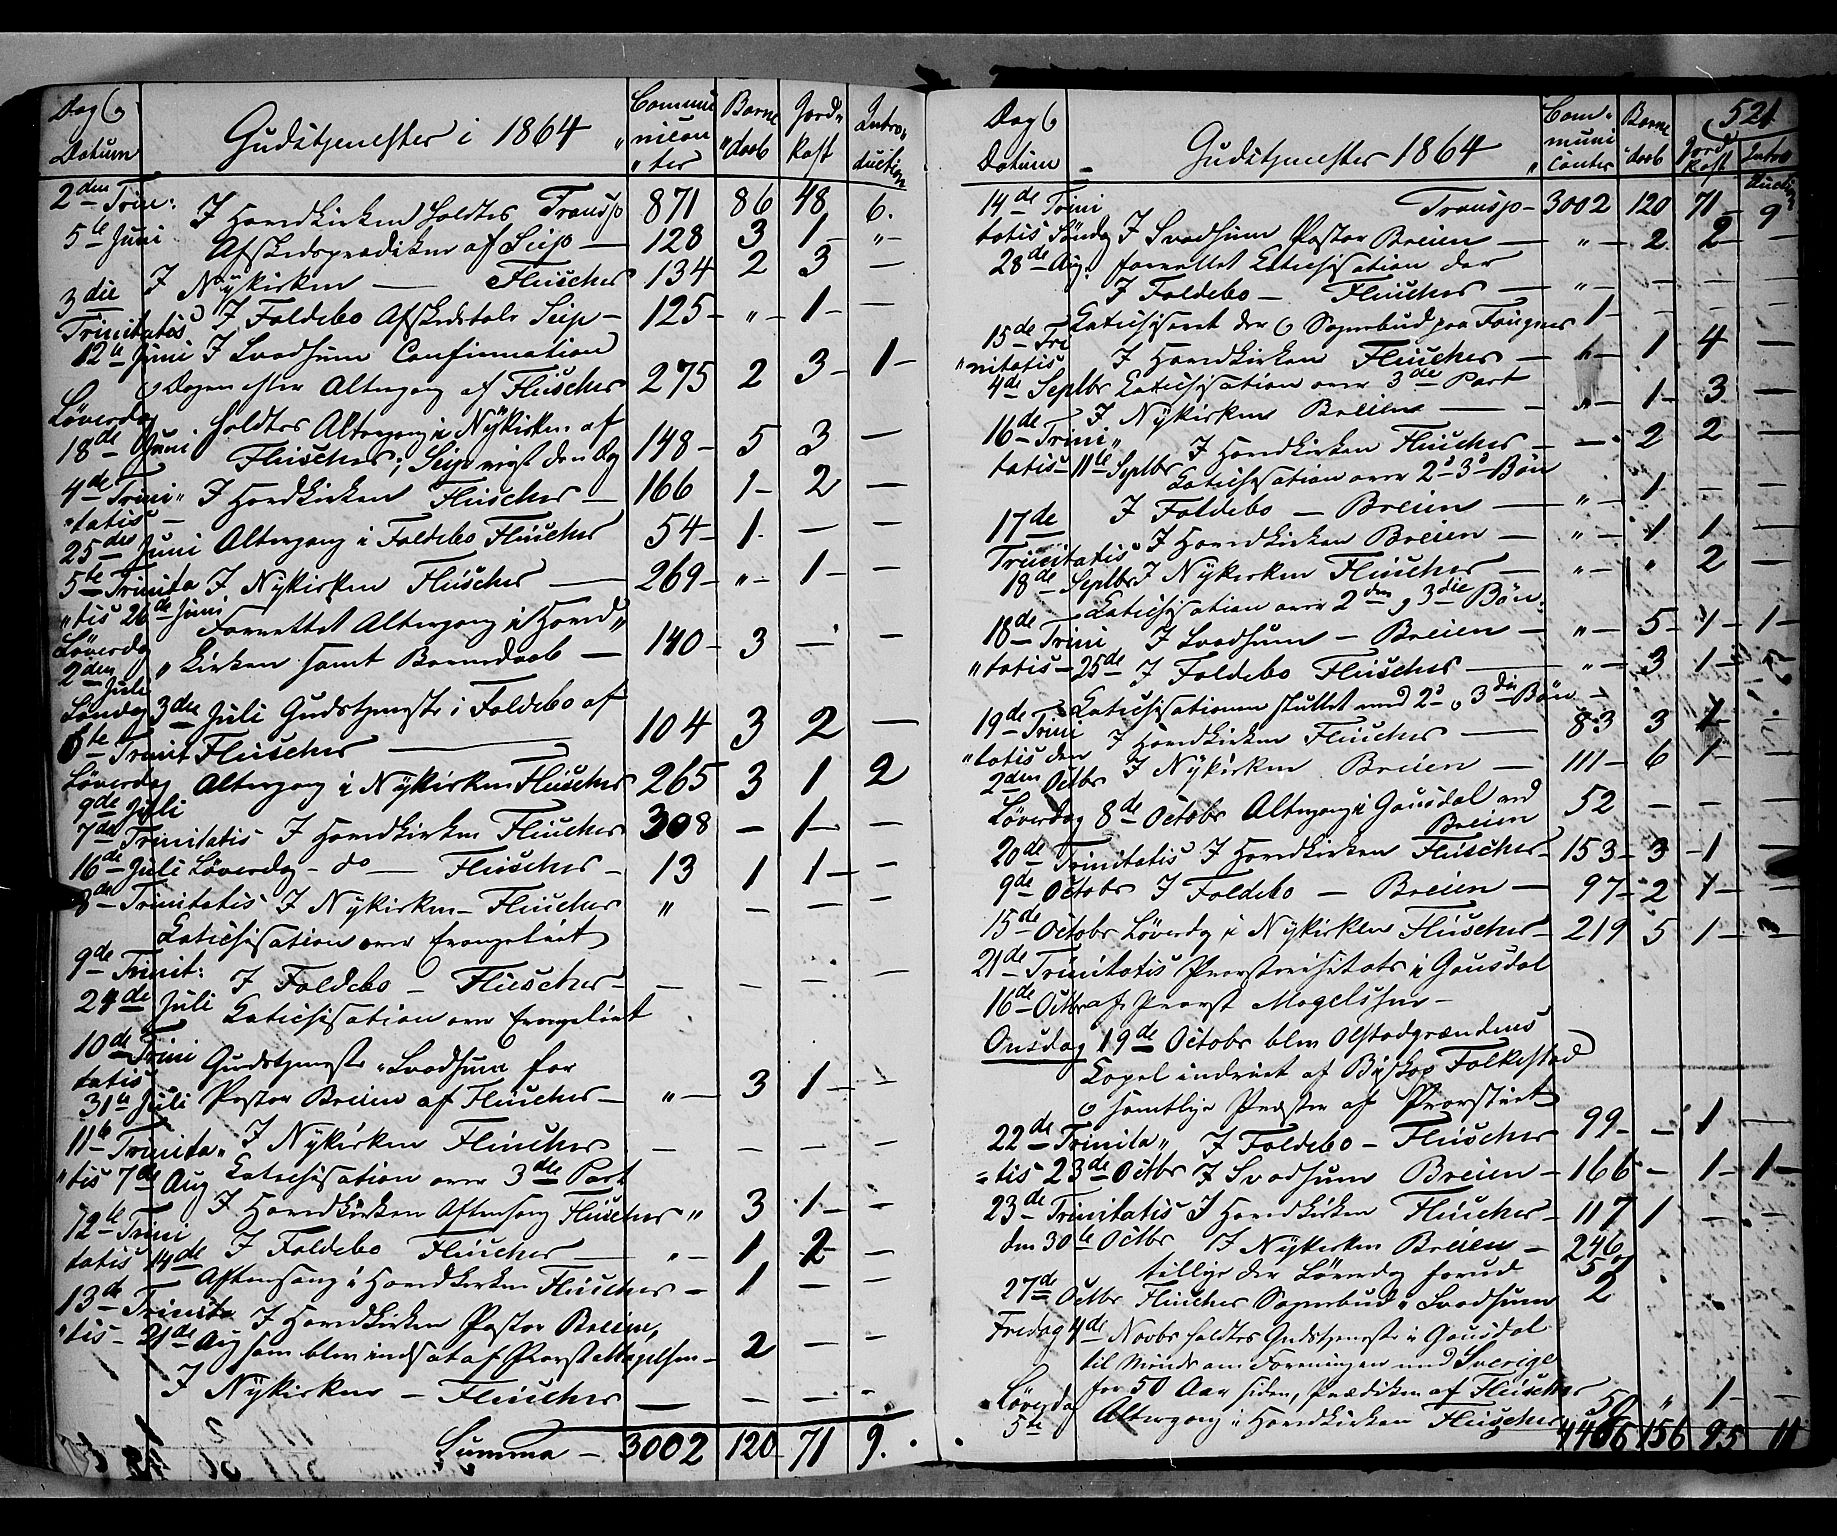 Dag &
Datum
Gudstjenester i 1864
Commu
"nican
"ter
Barne
"daab
Jord"
kast
Intro"
duction
2den Trin: I Hovedkirken holdtes Transp 871 86 48 6.
5te Juni Afskedsprædiken af Seip — 128 3 1 "
I Nykirken — Fleischer 134 2 3 —
3die
Trinitatis I Foldebo Afskedstale Seip — 125 — " — 1 — —
12te Juni I Svadsum Confirmation
& Dagen efter Altergang af Fleischer 275 2 3 — 1 —
Løverdag holdtes Altergang i Nykirken af
18de Juni Fleischer; Seip den Dag 148 — 5 3 —
4de Trini" I Hovedkirken Fleischer — 166 1 — 2 —
"tatis —
25de Juni Altergang i Foldebo Fleischer 54 — 1 — — —
5te Trinita I Nykirken Fleischer — 269 — " — 1 — —
"tis 26de Juni
Løverdag Forrettet Altergang i Hoved"
2den Juli "kirken samt Barnedaab — 140 — 3 — —
Søndag 3die Juli Gudstjeneste i Foldebo af
6te Trinit Fleischer — 104 3 2 —
Løverdag Altergang i Nykirken Fleischer 265 3 1 2
9de Juli
7de Trinitatis I Hovedkirken Fleischer 308 — 1 — —
16de Juli Løverdag — do — Fleischer — 13 1 1 — —
8de Trinitatis I Nykirken — Fleischer " — — —
Catechisation over Evangeliet
9de Trinit: I Foldebo — Fleischer — — — — —
24de Juli Catechisation over Evangeliet
10de Trini
tatis Gudstjeneste i Svadsum for
31te Juli Pastor Breien af Fleischer — " — 3 1 — —
11te Trinita" I Nykirken Fleischer — — — —
"tis 7de Aug Catechisation over 3die Part
I Hovedkirken Aftensang Fleischer " 3 1 — —
12te Trini
tatis 14de I Foldebo Fleischer — " — 1 2 —
Aftensang i Hovedkirken Fleischer — 1 — —
13de Trinita I Hovedkirken Pastor Breien,
"tis — 21de Aug som blev indsat af Provst Mogelsen — 2 — —
I Nykirken — Fleischer — — — —
Summa — 3002 120 71 9.
521
Dag &
Datum
Gudstjenester 1864
Com"
muni
canter
Barne
"daab
Jord
kast
Intro
duction
14de Trini Transp — 3002 120 71 — 9
tatis Søndag I Svadsum Pastor Breien — " — 2 2 —
28de Aug: forrettet Catechisation der
I Foldebo — Fleischer — " — — — —
Catechiseret der & Sognebud paa 1 — — — —
15de Tri
"nitatis I Hovedkirken Fleischer — " — 1 4 —
4de Septbr Catechisation over 3die Part
I Nykirken Breien — " — 1 — 3 —
16de Trini" I Hovedkirken Fleischer — — 2 2 —
tatis — 11te Septbr Catechisation over 2d & 3d Bøn
I Foldebo — Breien — " — 1 — —
17de
Trinitatis I Hovedkirken Breien — " — 1 1 —
18de Septbr I Nykirken Fleischer — " — " 2 —
Catechisation over 2den & 3die Bøn.
18de Trini I Svadsum — Breien — " — 5 — 1 — 1 —
"tatis — 25de I Foldebo Fleischer — " — 3 1 —
Catechisationen sluttet med 2d & 3die Bøn —
19de Trini
"tatis den I Hovedkirken Fleischer — 83 3 1 —
2den Octbr I Nykirken Breien — 111 — 6 1 —
Løverdag 8de Octobr Altergang i Gausdal ved
Breien 52 — — —
20de Trinitatis I Hovedkirken Fleischer — 153 — 3 — 1 —
9de Octobr I Foldebo — Breien — 97 — 2 1 —
15de Octobr Løverdag i Nykirken Fleischer — 219 5 1 —
21de Trinitatis Provstevisitats i Gausdal
16de Octbr af Provst Mogelsen —
Onsdag 19de Octobr blev Olstadgrændens
Capel indviet af Biskop Folkestad
& samtlige Præster af Provstiet
22de Trinita" I Foldebo — Fleischer 99 — — 1 —
"tis 23de Octbr I Svadsum Breien — 166 — 1 — 1 —
23de Trinitatis I Hovedkirken Fleischer — 117 1 — —
den 30te Octbr I Nykirken Breien — 246
tillige der Løverdag forud 52
27de Octbr Fleischer Sognebud i Svadsum 2
Fredag 4de Novbr holdtes Gudstjeneste i Gausdal
til Minde om Foreningen med Sverige
for 50 Aar siden, Prædiken af Fleischer
Løverdag
5te Altergang i Hovedkirken Fleischer 50 " 1 —
4406 156 95 11